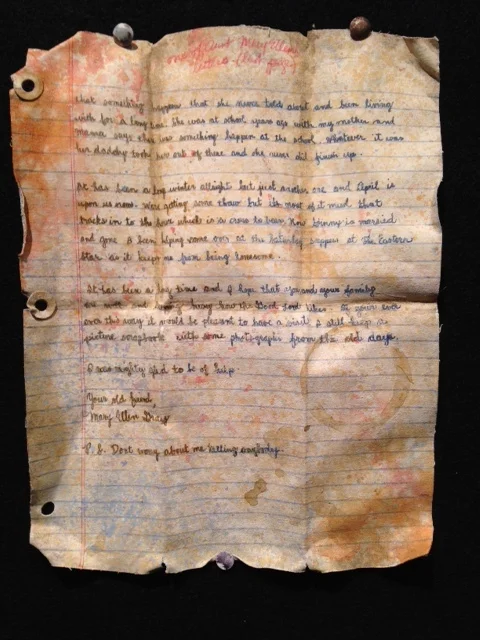 one of Aunt Mary Ellen's
letters (last page)
that something happen that she never told about and been living
with for a long time. She was at school years ago with my mother and
mama says there was something happen at the school. Whatever it was
her daddy took her out of there and she never did finish up.
It has been a long winter allright but just another one and April is
upon us now. We're getting some thaw but its most of it mud that
tracks in to the house which is a cross to bear. Now Ginny is married
and gone I been helping some on at the Saturday suppers at the Eastern
Star as it keeps me from being lonesome.
It has been a long time and I hope that you and your family
are well and having how the Good Lord likes. If your ever
over this way it would be pleasant to have a visit. I still keep a
picture scrapbook with some photographs from the old days.
I was mighty glad to be of help.
Your old friend,
Mary Ellen
P. S. Dont worry about me telling anybody.